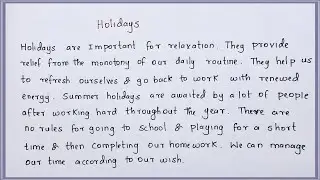 Holidays
Holidays are Important for relaxation. They provide
relief from the monotony of our daily routine. They help us
to refresh ourselves & go back to work with renewed
energy. Summer holidays are awaited by a lot of people
after working hard throughout the year. There are
no rules for going to school & playing for a short
time & then completing our homework. We can manage
our time according to our wish.